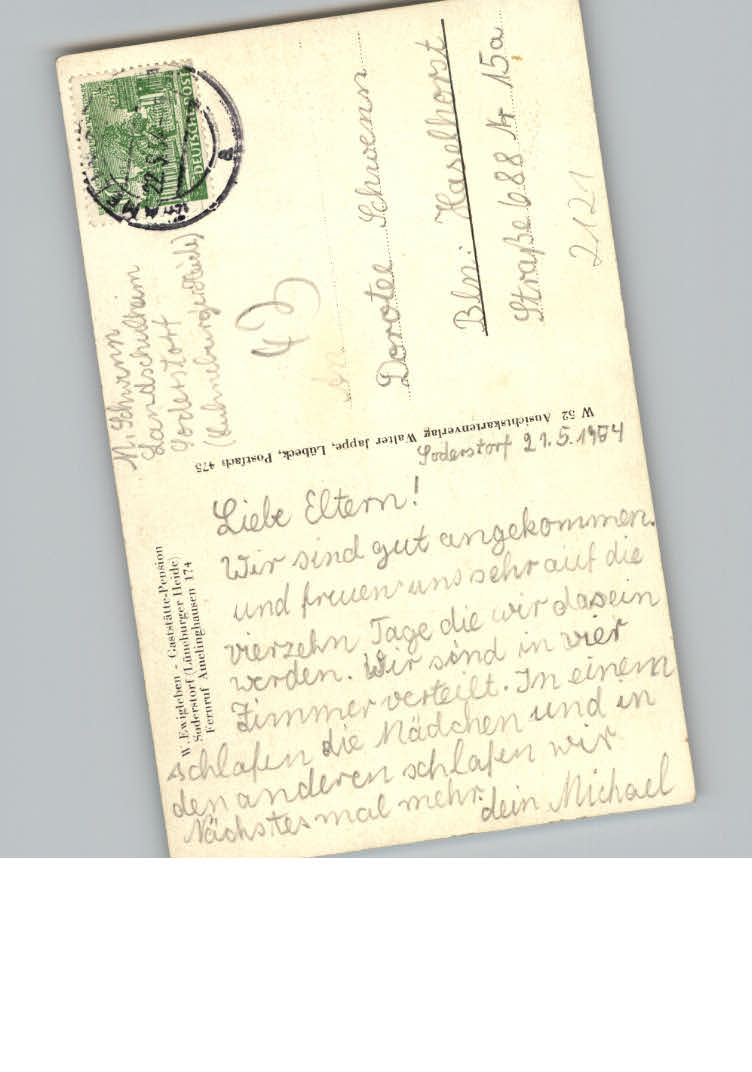 W. Ewigleben - Gaststätte-Pension
Soderstorf (Lüneburger Heide)
Fernruf Amelinghausen 174
Soderstorf 21.5.1954
Liebe Eltern!
Wir sind gut angekommen.
und freuen uns sehr auf die
vierzehn Tage die wir dasein
werden. Wir sind in vier
Zimmer verteilt. In einem
schlafen die Mädchen und in
den anderen schlafen wir
Nächstesmal mehr.
dein Michael
W 52 Ansichtskartenverlag Walter Jappe, Lübeck, Postfach 475
M. Schwenn
Landschulheim
Soderstorf
(Lühneburger Heide)
DEUTSCHE POST
22.5.
a
An
Dorotee Schwenn
Bln: Haselhorst
Straße 688 Nr 15a
2121